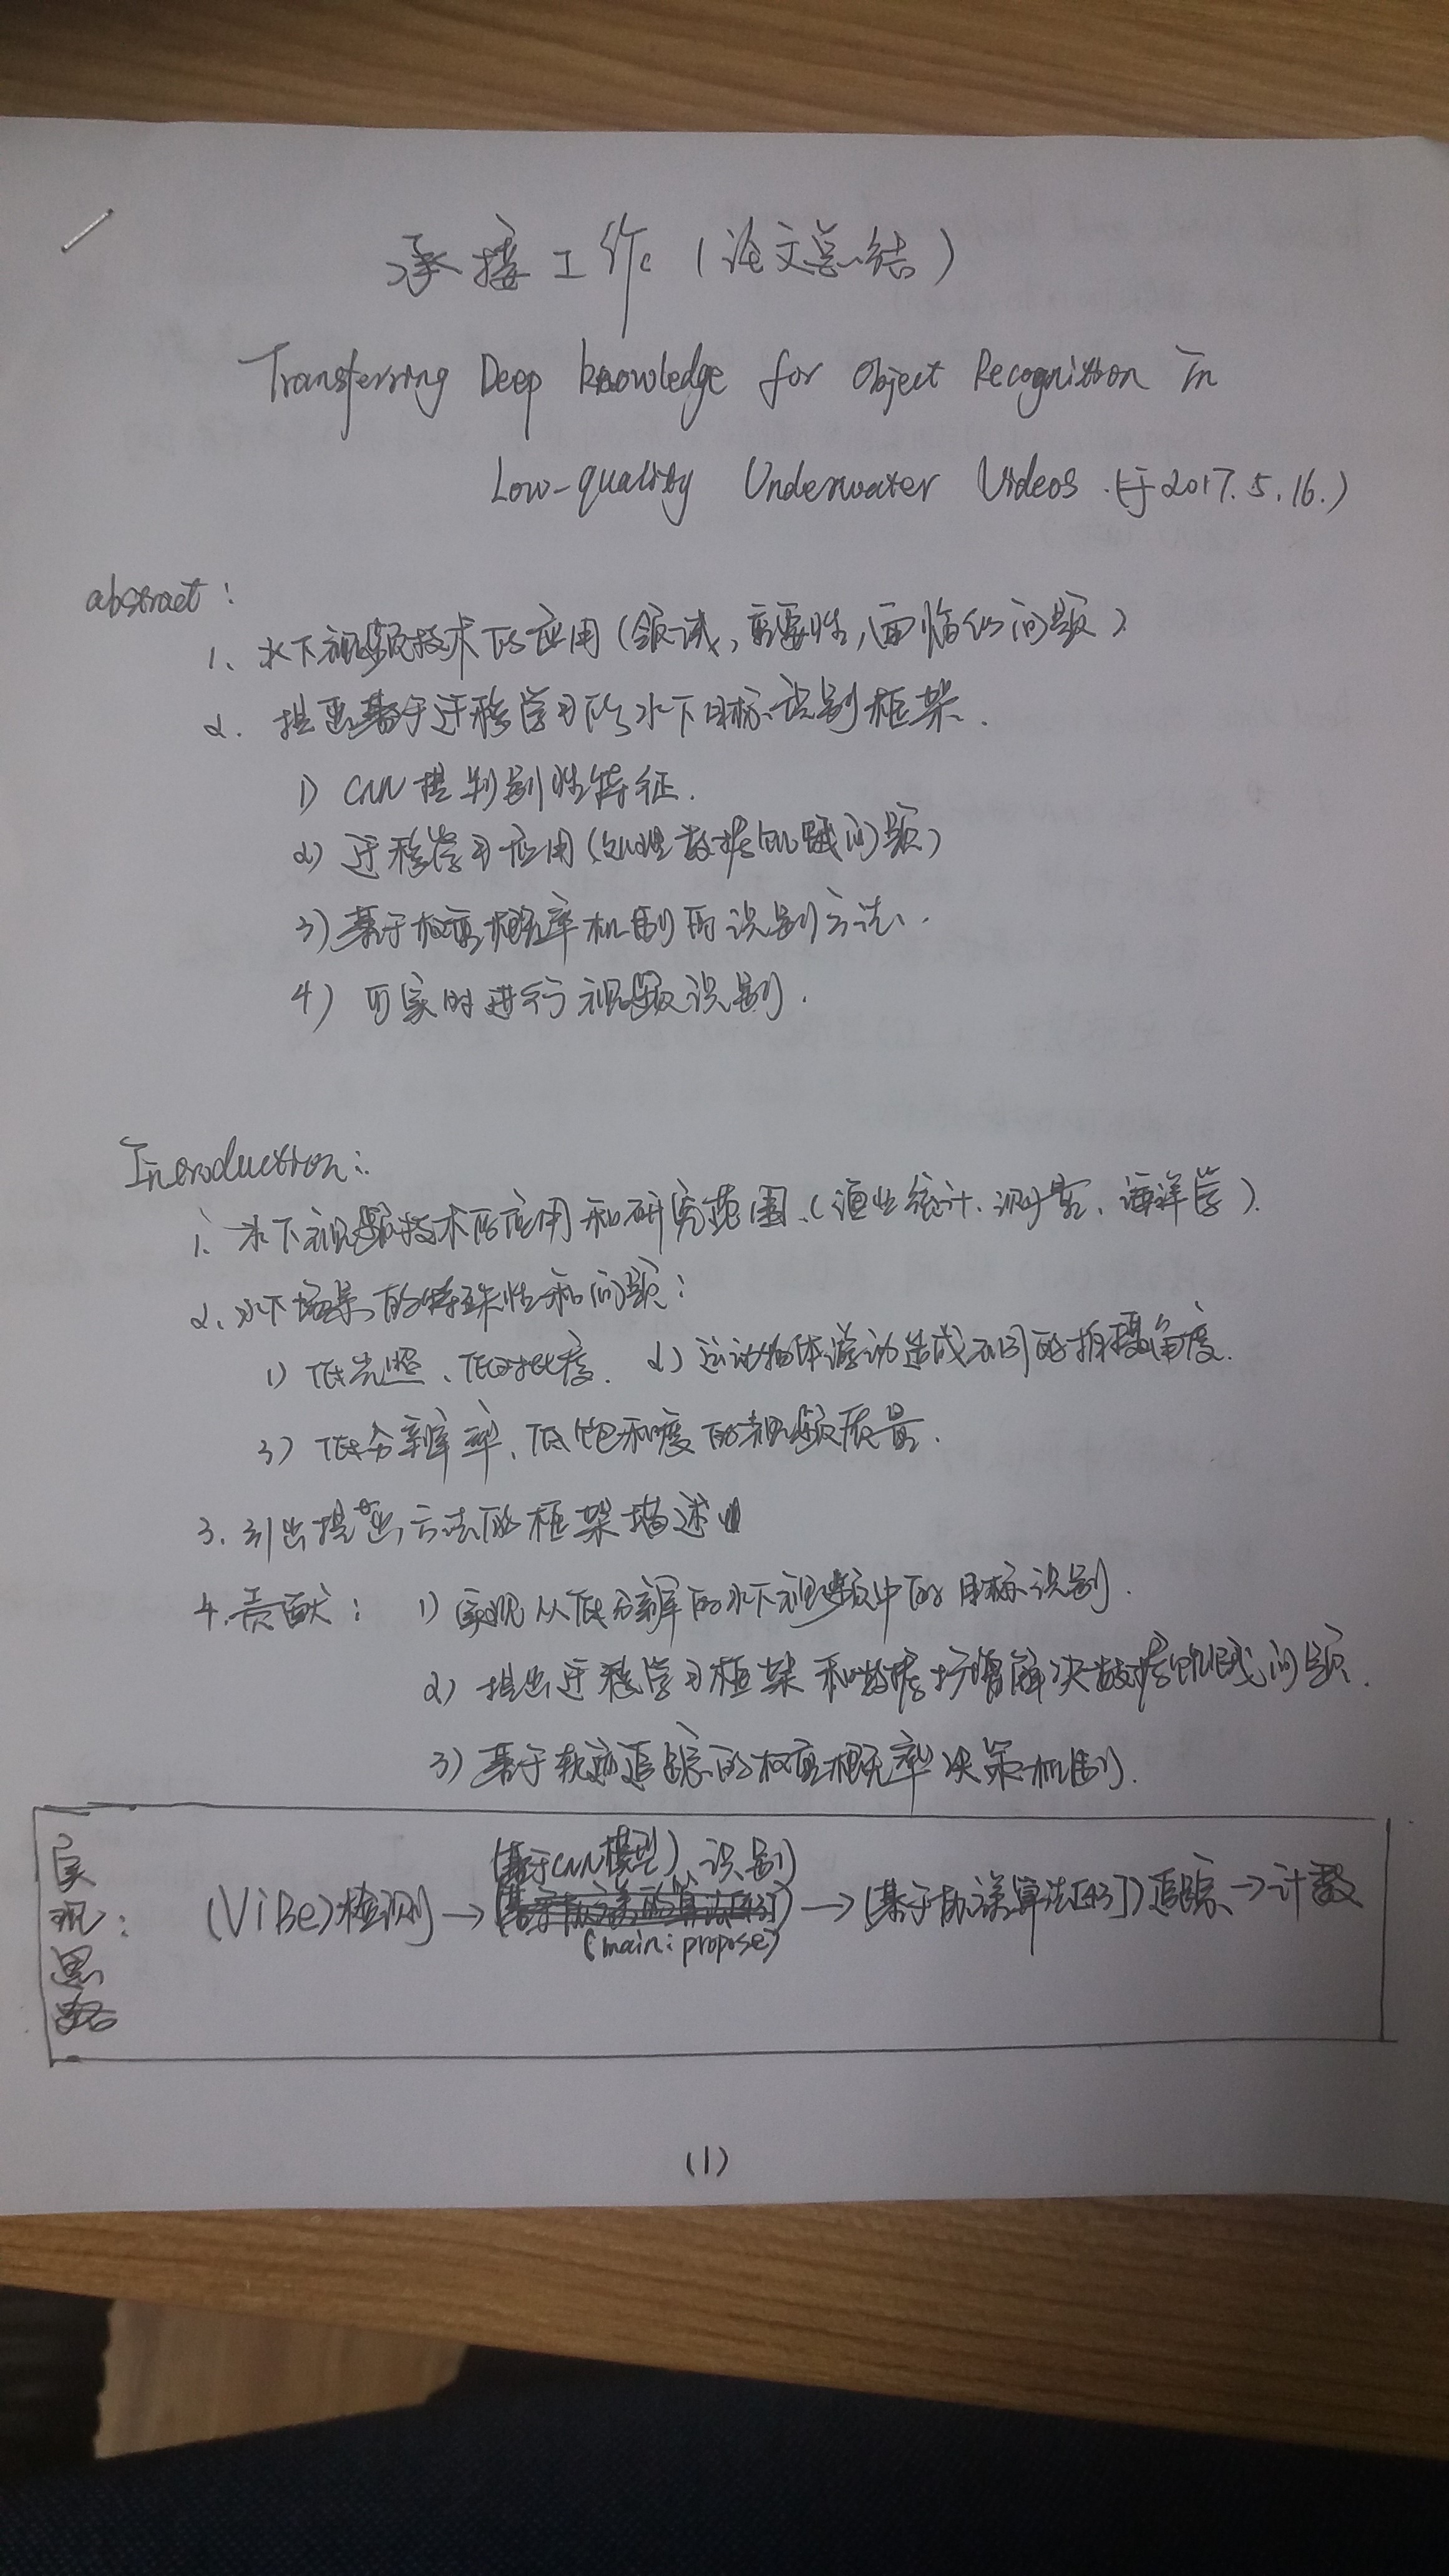 承接工作(论文总结)
Transferring Deep knowledge for Object Recognition In
Low-quality Underwater Videos.(于2017.5.16.)
abstract:
1、水下视频技术的应用(领域,重要性,面临的问题)
2. 提出基于迁移学习的水下目标识别框架.
1) CNN提判别性特征.
2) 迁移学习应用(处理数据饥饿问题)
3) 基于权重概率机制的识别方法.
4) 可实时进行视频识别.
Introduction:
1、水下视频技术的应用和研究范围、(渔业统计、测量、海洋学).
2、水下场景的特殊性和问题:
1) 低光照、低对比度. 2) 运动物体游动造成不同的拍摄角度.
3) 低分辨率、低饱和度的视频质量.
3. 引出提出方法的框架描述
4.贡献: 1) 实现从低分辨的水下视频中的目标识别.
2) 提出迁移学习框架和数据扩增解决数据饥饿问题.
3) 基于轨迹追踪的权重概率决策机制.
实现思路:
(基于CNN模型)识别
(ViBe)检测→ →(基于 算法[43])追踪→计数
(main:propose)
(1)